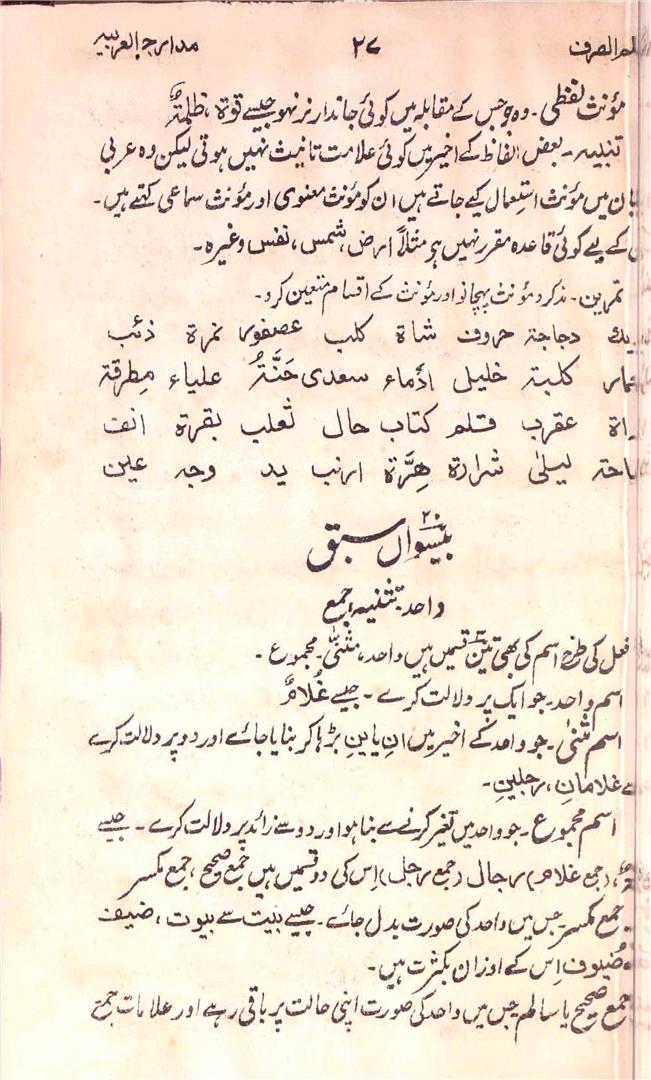 علم الصرف ۲۷ مدارج العربیہ
مؤنث لفظی۔ وہ ہو جس کے مقابلہ میں کوئی جاندار نر نہو جیسے قوۃ، ظلمۃٌ
تنبیہ۔ بعض الفاظ کے اخیر میں کوئی علامت تانیث نہیں ہوتی لیکن وہ عربی
بان میں مؤنث استعمال کیے جاتے ہیں ان کو مؤنث معنوی اور مؤنث سماعی کہتے ہیں۔
کے لیے کوئی قاعدہ مقرر نہیں ہو مثلاً ارض، شمس، نفس وغیرہ۔
تمرین۔ مذکر و مؤنث پہچانو اور مؤنث کے اقسام متعین کرو۔
دیك دجاجۃ خروف شاۃ کلب عصفور نمرۃ ذئب
کلبۃ خلیل اٰدماء سعدی جَنَّۃٌ علیاء مِطرقۃ
عقرب قلم کتاب حال ثعلب بقرۃ انف
لیلیٰ شرارۃ هِرَّۃ ارنب ید وجہ عین
۲۰
بیسواں سبق
واحد، تثنیہ، جمع
فعل کی طرح اسم کی بھی تین ۳ قسمیں ہیں واحد، مثنیّٰ۔ مجموع۔
اسم واحد۔ جو ایک پر دلالت کرے۔ جیسے غُلامٌ
اسم مثنیٰ۔ جو واحد کے اخیر میں انِ یا ینِ بڑہا کر بنایا جائے اور دو پر دلالت کرے
سے غلامانِ، رجلینِ۔
اسم مجموع۔ جو واحد میں تغیر کرنے سے بنا ہو اور دو سے زائد پر دلالت کرے۔ جیسے
(جمع غلام) رجال (جمع رجل) اِس کی دو قسمیں ہیں جمع صحیح، جمع مکسر
جمع مکسر جس میں واحد کی صورت بدل جائے۔ جیسے بیت سے بیوت، ضیف
ضُیوف اِس کے اوزان بکثرت ہیں۔
جمع صحیح یا سالم جس میں واحد کی صورت اپنی حالت پر باقی رہے اور علامات جمع